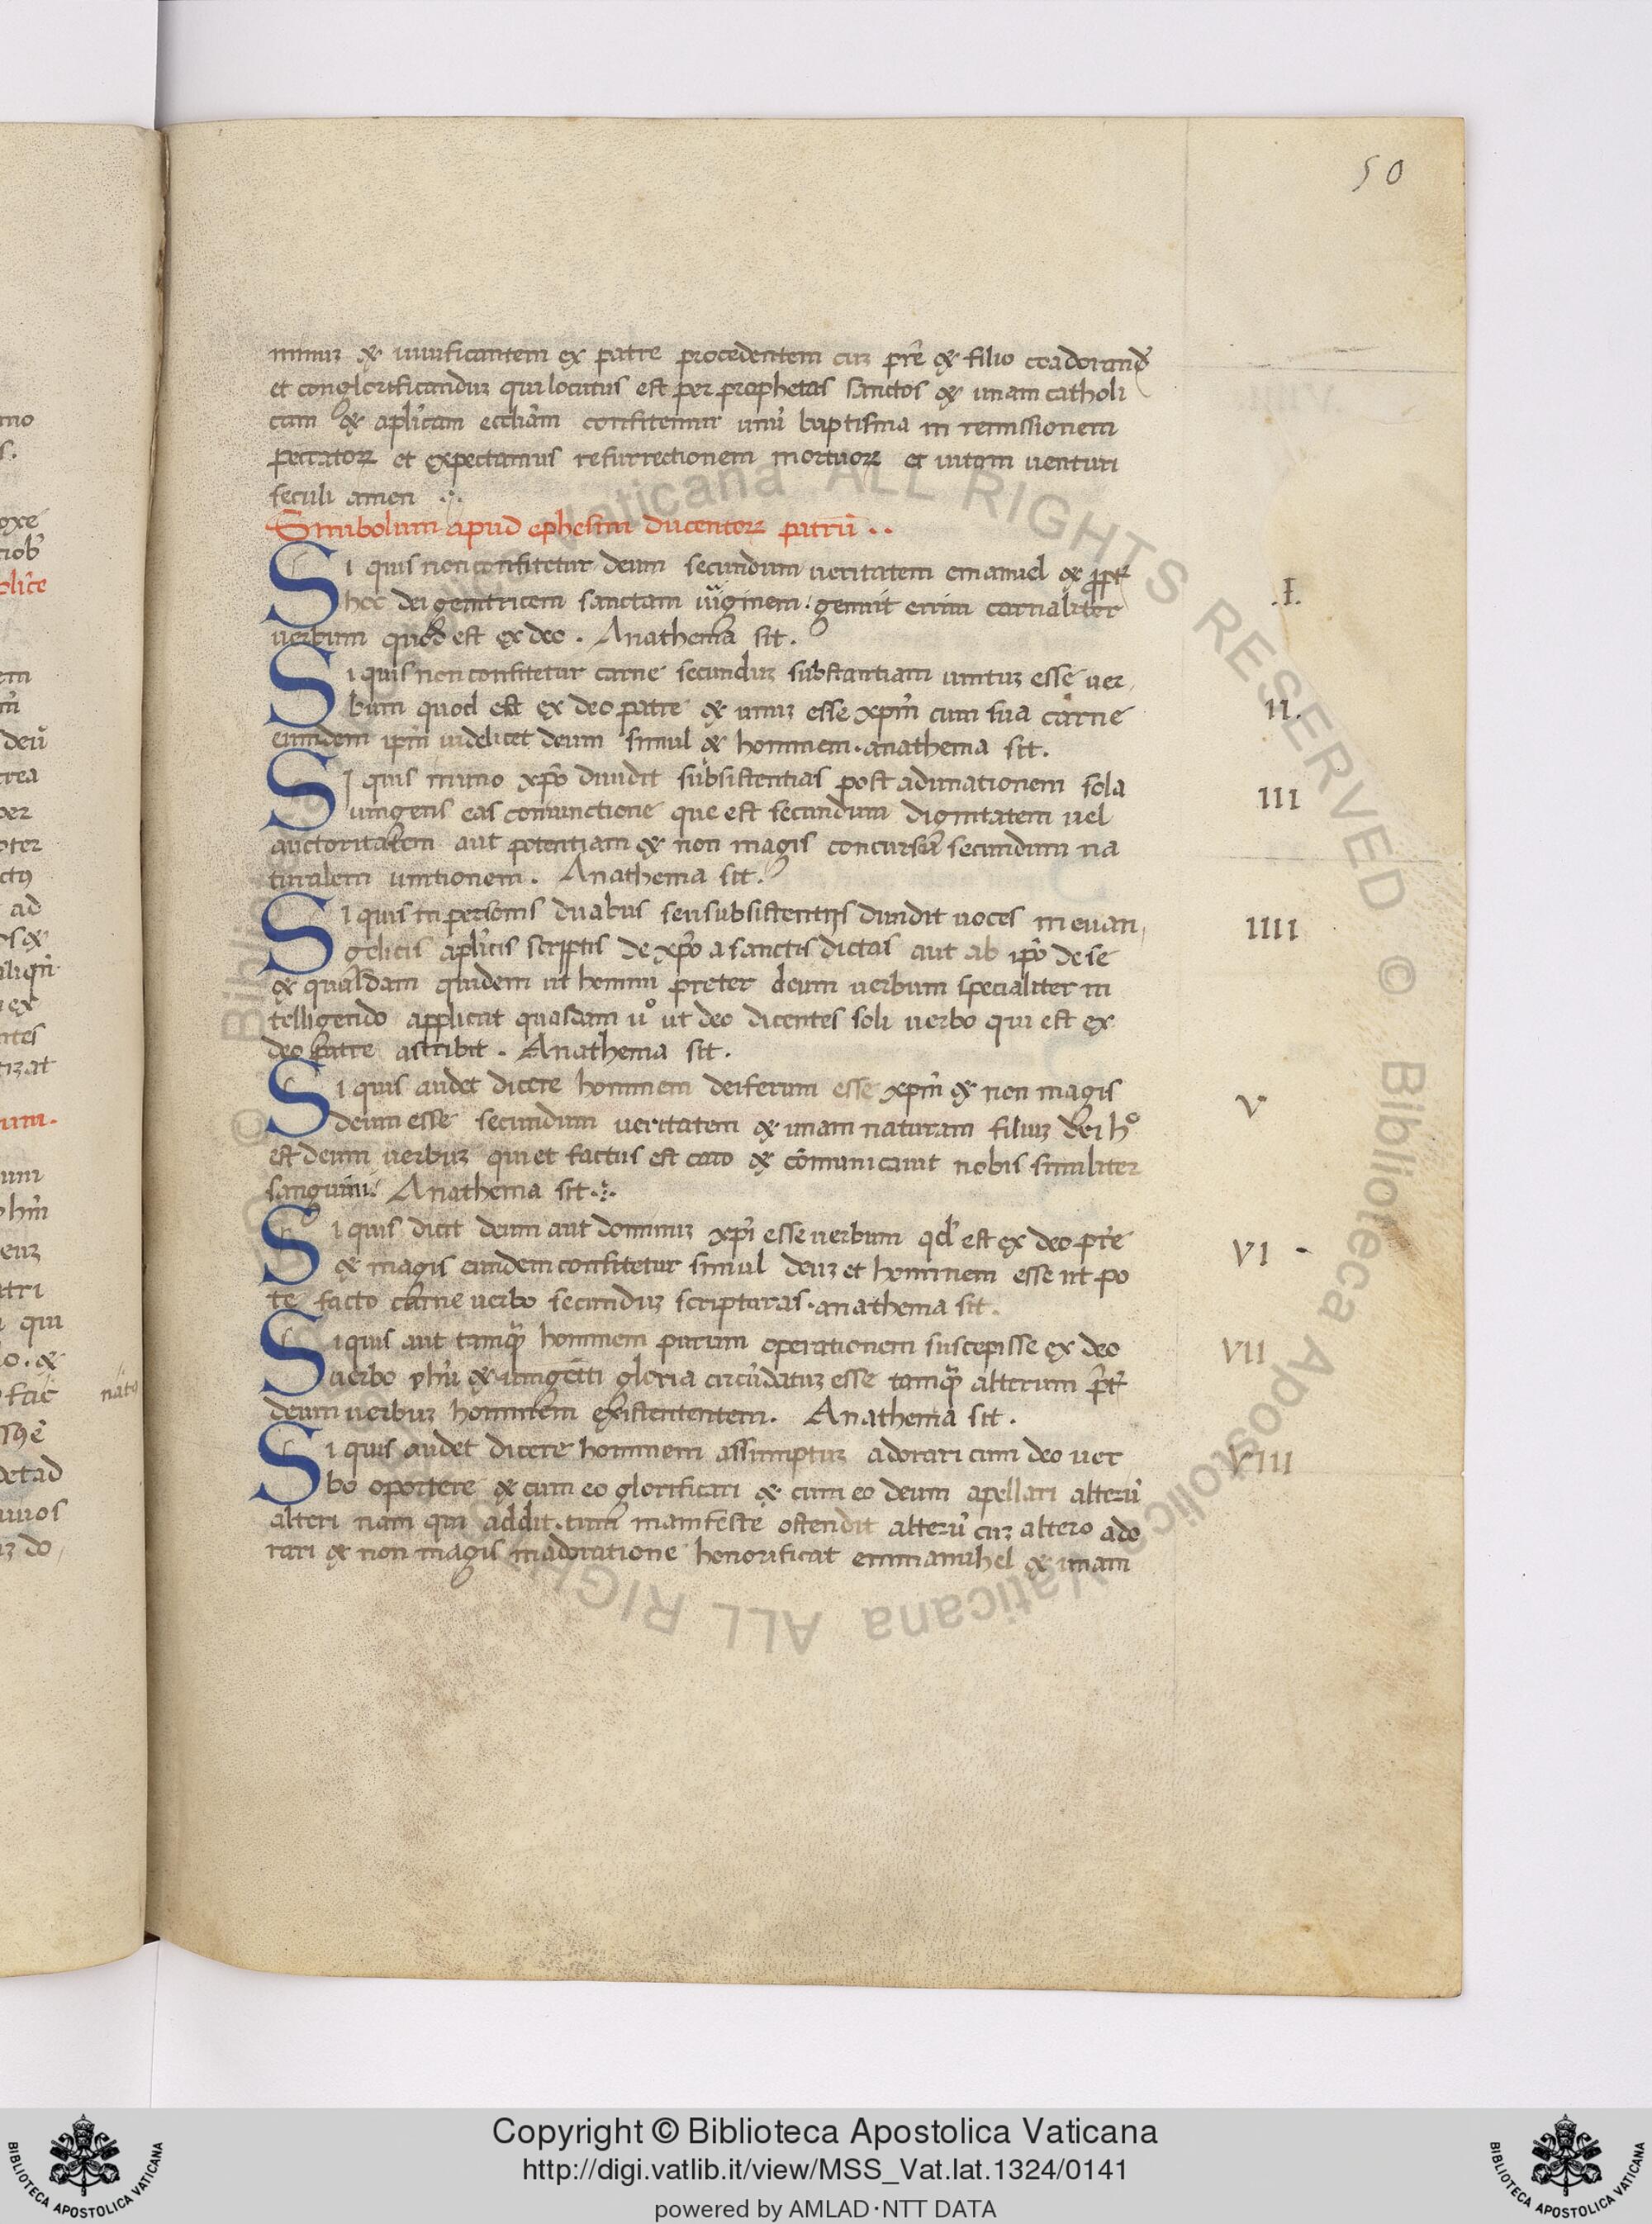 50
minuꝫ & uiuificantem ex patre procedentem cuꝫ pr̄e & filio coadorand̄
et conglorificanduꝫ qui locutus est per prophetas sanctos & unam catholi
cam & aplicam eccliam confitemur unū baptisma in remissionem
peccatoꝝ et expectamus resurrectionem mortuoꝝ et uitam uenturi
seculi amen
Simbolum apud ephesim ducentoꝝ patrū..
Si quis non confitetur deum secundum ueritatem emanuel & propt̄
.I.
hoc dei genitricem sanctam uirginem. genuit enim carnaliter
uerbum quod est ex deo. Anathema sit.
Si quis non confitetur carne secunduꝫ substantiam unituꝫ esse uer
II.
bum quod est ex deo patre & unuꝫ esse xp̄m cum sua carne
eumdem ip̄m uidelicet deum simul & hominem. anathema sit.
SI quis in uno xp̄o diuidit subsistentias post adunationem sola
III
iungens eas coniunctione que est secundum dignitatem uel
auctoritatem aut potentiam & non magis concursū secundum na
turalem unitionem. Anathema sit.
SI quis in personis duabus seu subsistentiis diuidit uoces in euan
IIII
gelicis aplicis scriptis de xp̄o a sanctis dictas aut ab ip̄o de se
& quasdam quidem ut homini preter deum uerbum specialiter in
telligendo applicat quasdam uº ut deo dicentes soli uerbo qui est ex
deo patre ascribit. Anathema sit.
Si quis audet dicere hominem deiferum esse xp̄m & non magis
V
deum esse secundum ueritatem & unam naturam filiuꝫ dei hº
est deum uerbuꝫ qui et factus est caro & cōmunicauit nobis similiter
sanguini. Anathema sit.
Si quis dicit deum aut dominuꝫ xp̄i esse uerbum qd̄ est ex deo pr̄e
VI
& magis eundem confitetur simul deuꝫ et hominem esse ut po
te facto carne uerbo secunduꝫ scripturas. anathema sit.
Si quis aut tamq̄ hominem purum operationem suscepisse ex deo
VII
uerbo yhū & unigeniti gloria circūdatuꝫ esse tamq̄ alterum pr̄t
deum uerbuꝫ hominem existententem. Anathema sit.
Si quis audet dicere hominem assumptuꝫ adorari cum deo uer
VIII
bo oportere & cum eo glorificari & cum eo deum apellari alterū
alteri nam qui addit. cum manifeste ostendit alterū cuꝫ altero ado
rari & non magis inadoratione honorificat emmanuhel & unam
Copyright © Biblioteca Apostolica Vaticana
http://digi.vatlib.it/view/MSS_Vat.lat.1324/0141
powered by AMLAD·NTT DATA